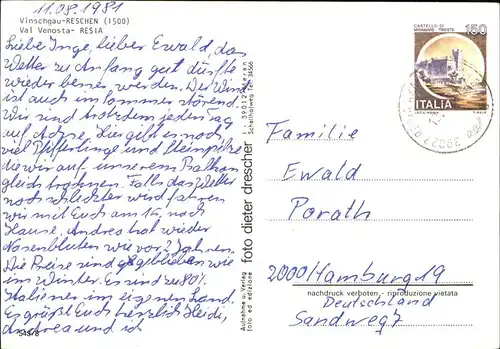 11.08.1981
Vinschgau-RESCHEN (1500)
Val Venosta- RESIA
Liebe Inge, lieber Ewald, das
Wetter zu Anfang gut dürfte
wieder besser werden. Der Wind
ist auch im Sommer störend.
Wir sind trotzdem jeden Tag
auf Achse. Hier gibt es noch
viel Pfifferlinge und Steinpilze
die wir auf unserem Balkon
gleich trocknen. Falls das Wetter
noch schlechter wird fahren
wir mit Euch am 15. nach
Hause. Andrea hat wieder
Nasenbluten wie vor 2 Jahren.
Die Preise sind geblieben wie
im Winter. Es sind zu 80%
Italiener im eigenen Land.
Es grüßt Euch herzlich Heidi,
Andrea und ich
543/8
Aufnahme u. Verlag
foto ed edizione
foto dieter drescher
CASTELLO DI
MIRAMARE - TRIESTE
150
ITALIA
39027
Familie
Ewald
Porath
2000 Hamburg 19
nachdruck verboten - riproduzione vietata
Deutschland
Sandweg 7